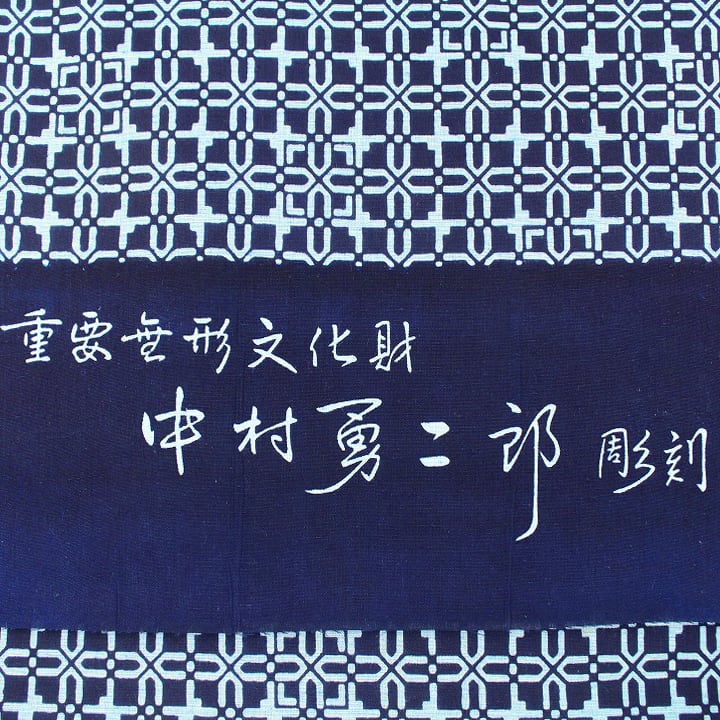 重要無形文化財
中村勇二郎 彫刻